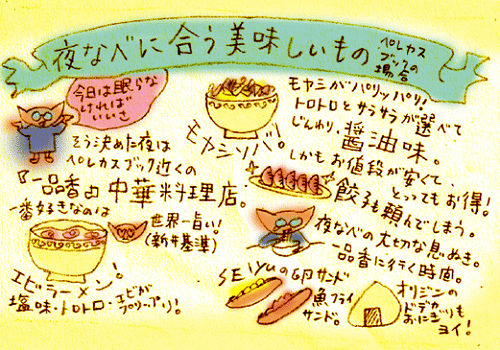 夜なべに合う美味しいもの
ペレカス
ブックの
場合
今日は眠らな
ければ
いいさ
そう決めた夜は
ペレカスブック近くの
『一品香』中華料理店。
一番好きなのは
世界一旨い!
(新井基準)
エビラーメン!
塩味・トロトロ・エビが
プリップリ!
モヤシソバ。
モヤシがパリッパリ!
トロトロとサラサラが選べて
じんわり、醤油味。
しかもお値段が安くて、
とってもお得!
餃子も頼んでしまう。
夜なべの大切な息ぬき。
一品香に行く時間。
SEIYUの卵サンド
魚フライ
サンド。
オリジンの
ドデカ
おにぎりも
ヨイ!